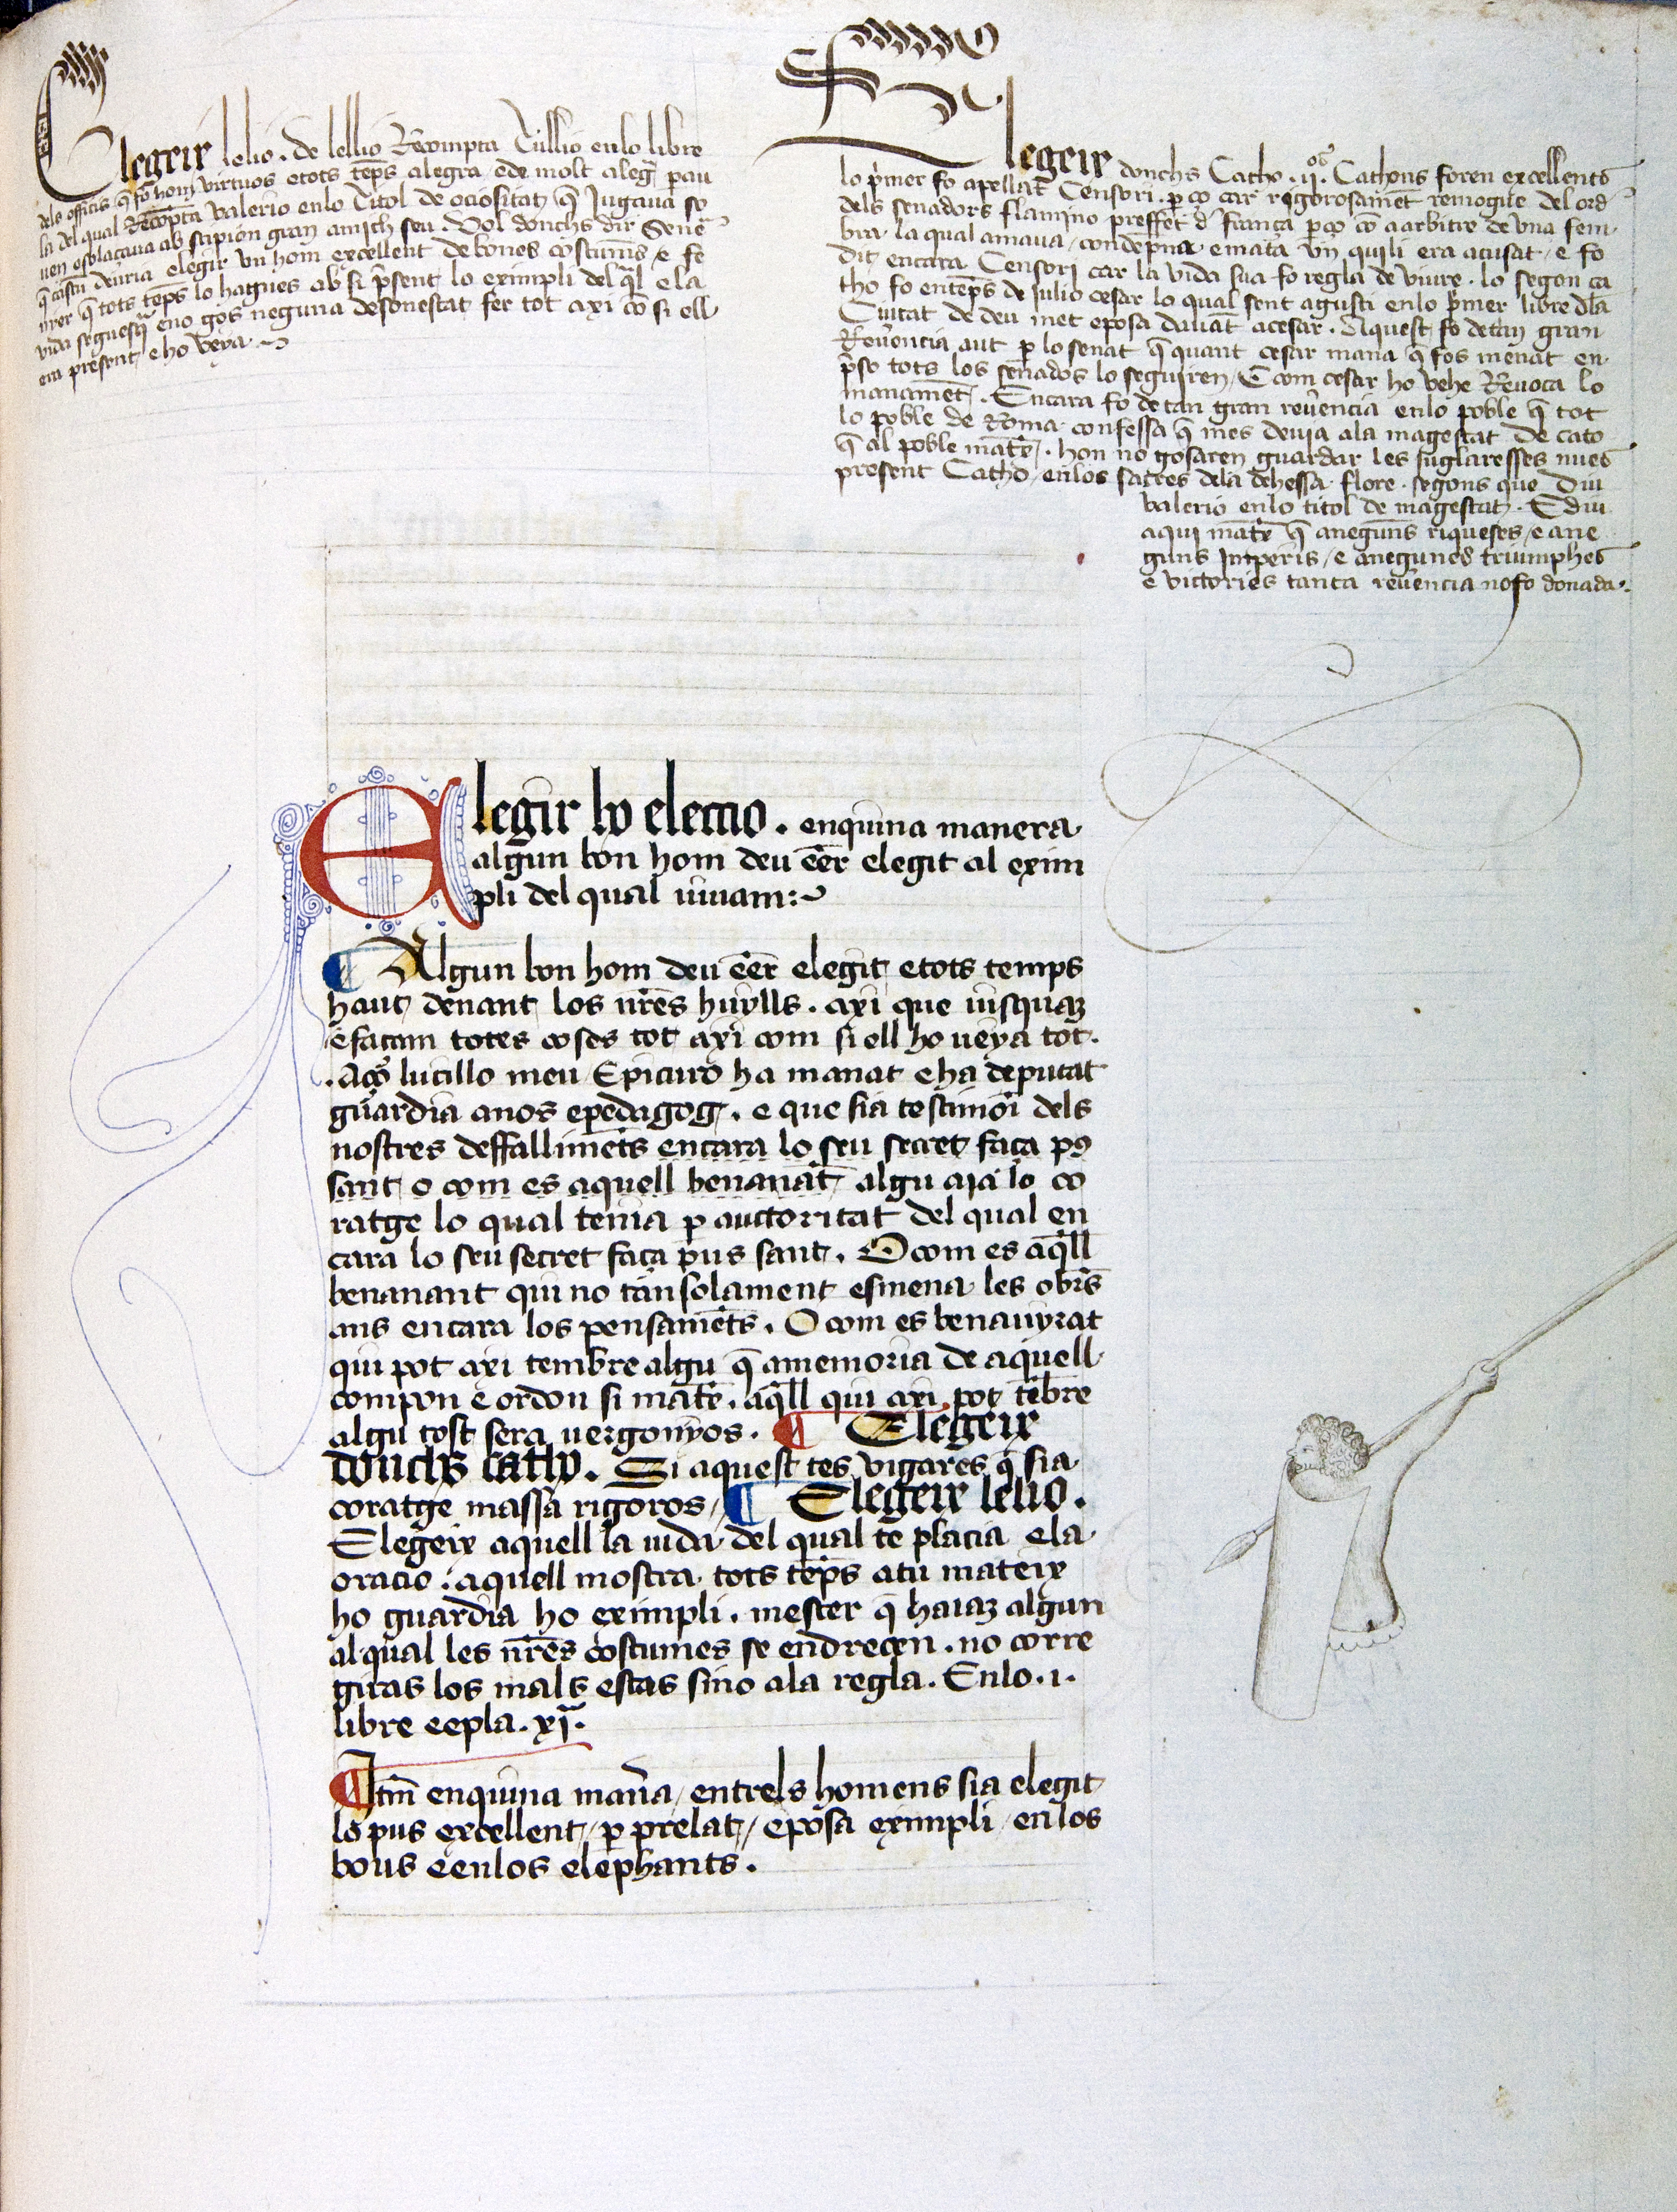 Elegeix lelio. de lellio Recompta Tullio enlo libre
dels officis q̄ fo hom virtuos etots tēps alegra ede molt alegr̄ pau
la del qual Recōpta valerio enlo Titol de ociositat q̄ Jugaua so
uen esolaçaua ab scipion gran amich seu. Vol donchs dir Sene
q̄ cascu deuria elegir vn hom excellent de bones costums e fe
urer q̄ tots tēps lo hagues ab si p̄sent lo eximpli del ql̄ e la
vida seguesq̄ eno gos neguna desonestat fer tot axi cō si ell
era present e ho veya
Elegeix donchs Catho. ij. Cathons foren excellents
lo p̄mer fo apellat Censori. p̄ ço car rigorosamēt remogue del ord̄
dels senadors flamino preffet d̄ frança p̄ço cō a arbitre de vna fem
bra. la qual amaua, condēpna e mata vn quili era acusat, e fo
dit encara Censori car la vida sua fo regla de viure. lo segon ca
tho fo entēps de Julio cesar lo qual sent agusti enlo p̄mer libre dla
Ciutat de deu met eposa dauāt acesar. Aquest fo de tan gran
Reuerencia aut p̄ lo senat q̄ quant cesar mana q̄ fos menat en
p̄so tots los senados lo seguiren, E com cesar ho vehe Reuoca lo
manamēt. Encara fo de tan gran reuencia enlo poble q̄ tot
lo poble de Roma confessa q̄ mes deuia ala magestat de cato
q̄ al poble matē. hon no gosaren guardar les juglaresses nues
present Catho, enlos sacres dela dehessa flore. segons que diu
valerio enlo titol de magestat. E diu
aqui matē q̄ aneguns riqueses, e ane
guns Imperis, e anegunes triumphes
e victories tanta reuencia nofo donada.
Elegir lo electio. enquina manera
algun bon hom deu eēr elegit al exim
pli del qual uiuam:
¶ Algun bon hom deu eēr elegit etots temps
haut denant los nr̄es huylls. axi que uisquaz
efaçam totes coses tot axi com si ell ho ueya tot.
.Aço lucillo meu Epicuro ha manat e ha deputat
guardia anos epedagog. e que sia testimoi dels
nostres deffallimēts encara lo seu secret faça p9
sant o com es aquell benanāt algu aia lo co
ratge lo qual tenia p̄ auctoritat del qual en
cara lo seu secret faça pus sant. O com es aq̄ll
benanant qui no tan solament esmena les obrēs
ans encara los pensamēts. O com es benauyrat
qui pot axi tembre algu q̄ amemoria de aquell
compon e ordon si matē. aq̄ll qui axi pot tēbre
algu tost sera uergonyos. ¶ Elegeix
donchs catho. Si aquest tes vigares q̄ sia
coratge massa rigoros, ¶ Elegeix lelio.
Elegeix aquell la uida del qual te placia e la
oracio. aquell mostra tots tēps atu mateix
ho guardia ho eximpli. mester q̄ haiaz algun
al qual les nr̄es costumes se endreçen. no corre
giras los mals estas sino ala regla. Enlo .i.
libre eepla. xi.
¶ Itm̄ enquina man̄a, entrels homens sia elegit
lo pus excellent, p̄ prelat, eposa eximpli, en los
bous eenlos elephants.